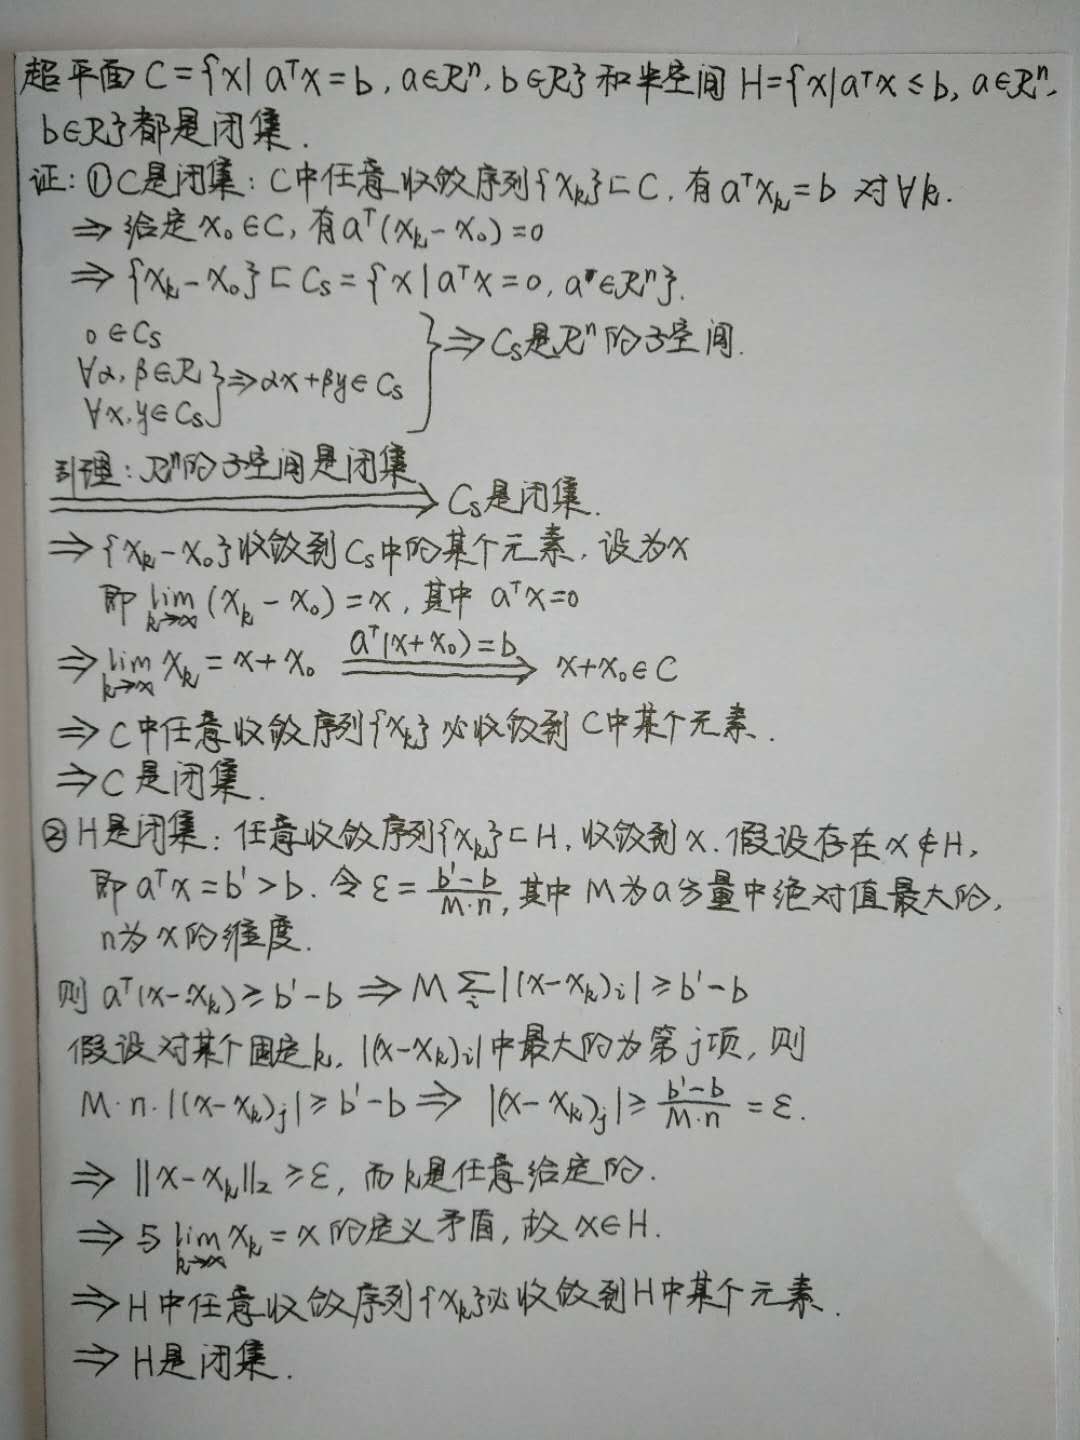 超平面 C={x| aᵀx=b, a∈Rⁿ, b∈R}和半空间 H={x|aᵀx≤b, a∈Rⁿ,
b∈R}都是闭集.
证: ①C是闭集: C中任意收敛序列{xₖ}⊏C, 有aᵀxₖ=b 对∀k.
⇒ 给定x₀∈C, 有aᵀ(xₖ-x₀)=0
⇒ {xₖ-x₀}⊏Cs={x|aᵀx=0, a∈Rⁿ}.
0∈Cs
∀α,β∈R
∀x,y∈Cs } ⇒αx+βy∈Cs } ⇒Cs是Rⁿ的子空间.
引理: Rⁿ的子空间是闭集 ⇒ Cs是闭集.
⇒{xₖ-x₀}收敛到Cs中的某个元素, 设为x
即 lim k→∞ (xₖ-x₀)=x, 其中 aᵀx=0
⇒ lim k→∞ xₖ=x+x₀ aᵀ(x+x₀)=b ⇒ x+x₀∈C
⇒ C中任意收敛序列{xₖ}必收敛到C中某个元素.
⇒C是闭集.
② H是闭集: 任意收敛序列{xₖ}⊏H, 收敛到x. 假设存在x∉H,
即 aᵀx=b'>b. 令 ε=(b'-b)/(M·n), 其中 M为a分量中绝对值最大的,
n为x的维度.
则 aᵀ(x-xₖ)≥b'-b ⇒ M∑ᵢ|(x-xₖ)ᵢ|≥b'-b
假设对某个固定k, |(x-xₖ)ᵢ|中最大的为第j项, 则
M·n·|(x-xₖ)ⱼ|≥b'-b ⇒ |(x-xₖ)ⱼ|≥(b'-b)/(M·n)=ε.
⇒ ||x-xₖ||₂≥ε, 而k是任意给定的.
⇒ 与 lim k→∞ xₖ=x的定义矛盾, 故x∈H.
⇒H中任意收敛序列{xₖ}必收敛到H中某个元素.
⇒ H是闭集.